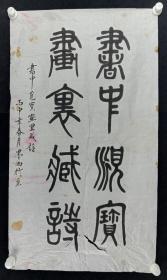 書中覓寶
畫裏藏詩
書中覓寶畫里藏詩
丙申 春月